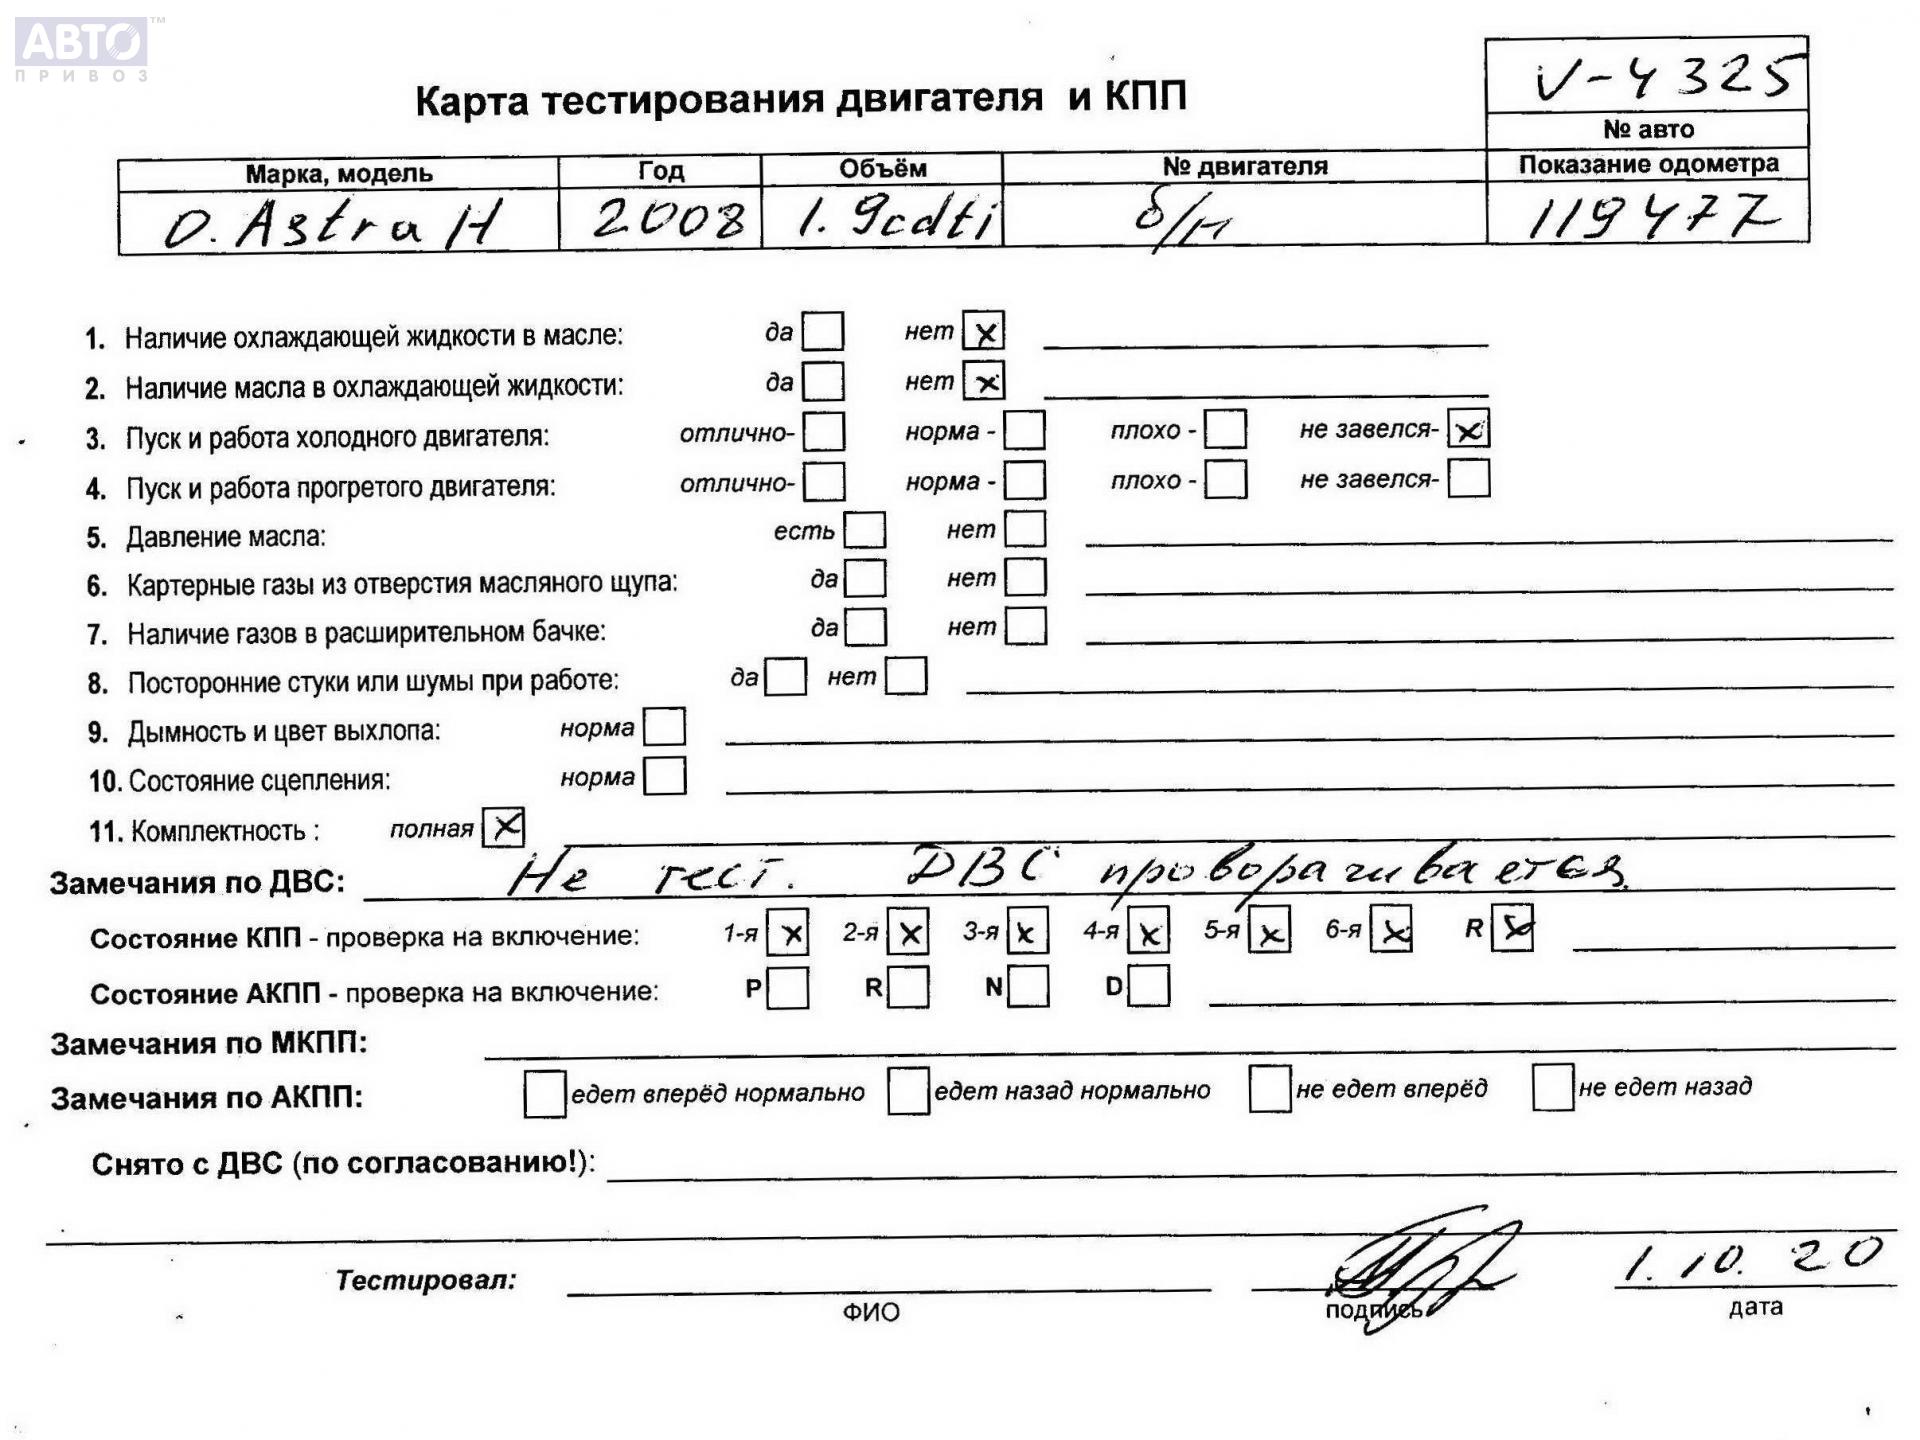 АВТО™
ПРИВОЗ
Карта тестирования двигателя и КПП
V-4325
№ авто
Марка, модель Год Объём № двигателя Показание одометра
O. Astra H 2008 1.9cdti б/н 119477
1. Наличие охлаждающей жидкости в масле: да нет x
2. Наличие масла в охлаждающей жидкости: да нет x
3. Пуск и работа холодного двигателя: отлично- норма - плохо - не завелся- x
4. Пуск и работа прогретого двигателя: отлично- норма - плохо - не завелся-
5. Давление масла: есть нет
6. Картерные газы из отверстия масляного щупа: да нет
7. Наличие газов в расширительном бачке: да нет
8. Посторонние стуки или шумы при работе: да нет
9. Дымность и цвет выхлопа: норма
10. Состояние сцепления: норма
11. Комплектность : полная x
Замечания по ДВС: Не тест. ДВС проворачивается
Состояние КПП - проверка на включение: 1-я x 2-я x 3-я x 4-я x 5-я x 6-я x R x
Состояние АКПП - проверка на включение: P R N D
Замечания по МКПП:
Замечания по АКПП: едет вперёд нормально едет назад нормально не едет вперёд не едет назад
Снято с ДВС (по согласованию!):
Тестировал: 1.10.20
ФИО подпись дата